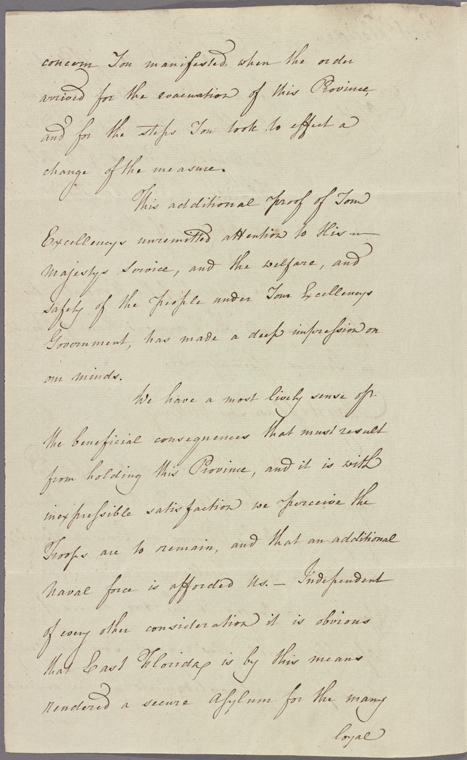 concern You manifested when the order
arrived for the evacuation of this Province,
and for the steps You took to effect a
change of the measure.
This additional proof of Your
Excellencys unremitted attention to His
Majestys Service, and the welfare, and
safety of the people under Your Excellencys
Government, has made a deep impression on
our minds.
We have a most lively sense of
the beneficial consequences that must result
from holding this Province, and it is with
inexpressible satisfaction we perceive the
Troops are to remain, and that an additional
Naval force is afforded Us. — Independent
of every other consideration it is obvious
that East Florida is by this means
rendered a secure Asylum for the many
loyal